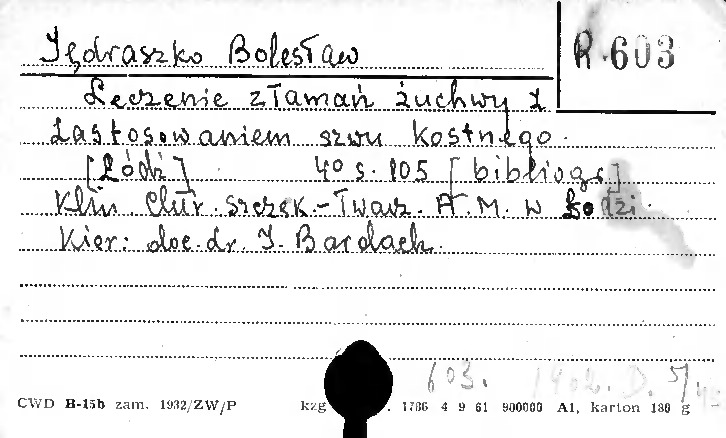 Jędraszko Bolesław
R 603
Leczenie złamań żuchwy z
zastosowaniem szwu kostnego.
[Łódź] 4° s. 105 [bibliogr.]
Klin. Chir. szczęk.-Twarz. A.M. w Łodzi.
Kier: doc. dr. J. Bardach.
603. 1902. D. 5/
CWD B-15b zam. 1932/ZW/P kzg 1786 4 9 61 900000 A1, karton 180 g